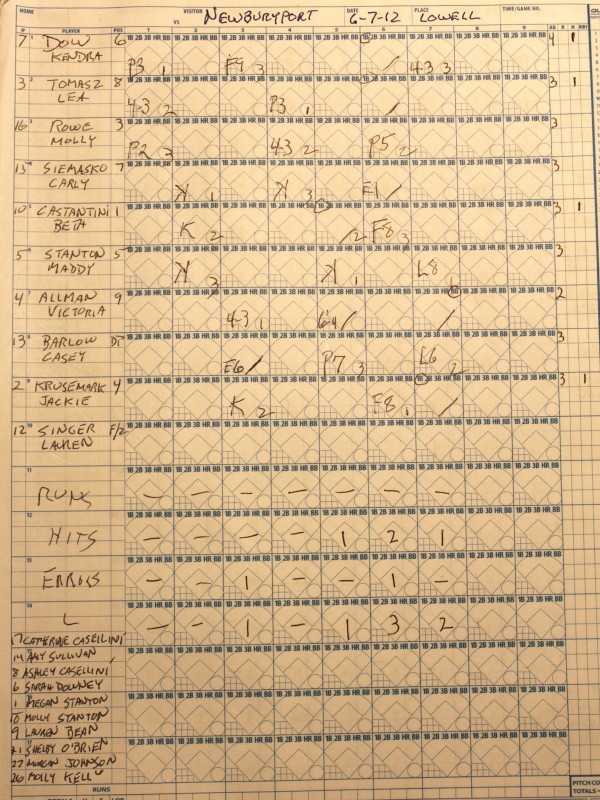 HOME VISITOR NEWBURYPORT DATE 6-7-12 PLACE LOWELL TIME/GAME NO.
VS
# PLAYER POS 1 2 3 4 5 6 7 8 9 AB R H RBI
7 1 DOW KENDRA 6 P3 1 F9 3 / 4-3 3 4 1
3 2 TOMASZ LEA 8 4-3 2 P3 1 / 3 1
16 3 ROWE MOLLY 3 P2 3 4-3 2 P5 2 3
15 4 SIEMASKO CARLY 7 K 1 K 3 E1 / 3
10 5 CASTANTINI BETH 1 K 2 / 2 F8 3 3 1
5 6 STANTON MADDY 5 K 3 K 1 L8 1 3
4 7 ALLMAN VICTORIA 9 4-3 1 6-4 / / 2
13 8 BARLOW CASEY DP E6 / P7 3 L6 2 3
2 9 KRUSEMARK JACKIE 4 K 2 F8 1 / 3 1
12 10 SINGER LAUREN F/2
11 RUNS – – – – – – –
12 HITS – – – – 1 2 1
13 ERRORS – – 1 – – 1 –
14 L – – 1 – 1 3 2
17 CATHERINE CASELLINI
14 AMY SULLIVAN
8 ASHLEY CASELLINI
6 SARAH DOWNEY
1 MEGAN STANTON
MOLLY STANTON
9 LAUREN BEAN
21 SHELBY O'BRIEN
22 MORGAN JOHNSON
26 MOLLY KELLY
RUNS
PITCH CO
TOTALS